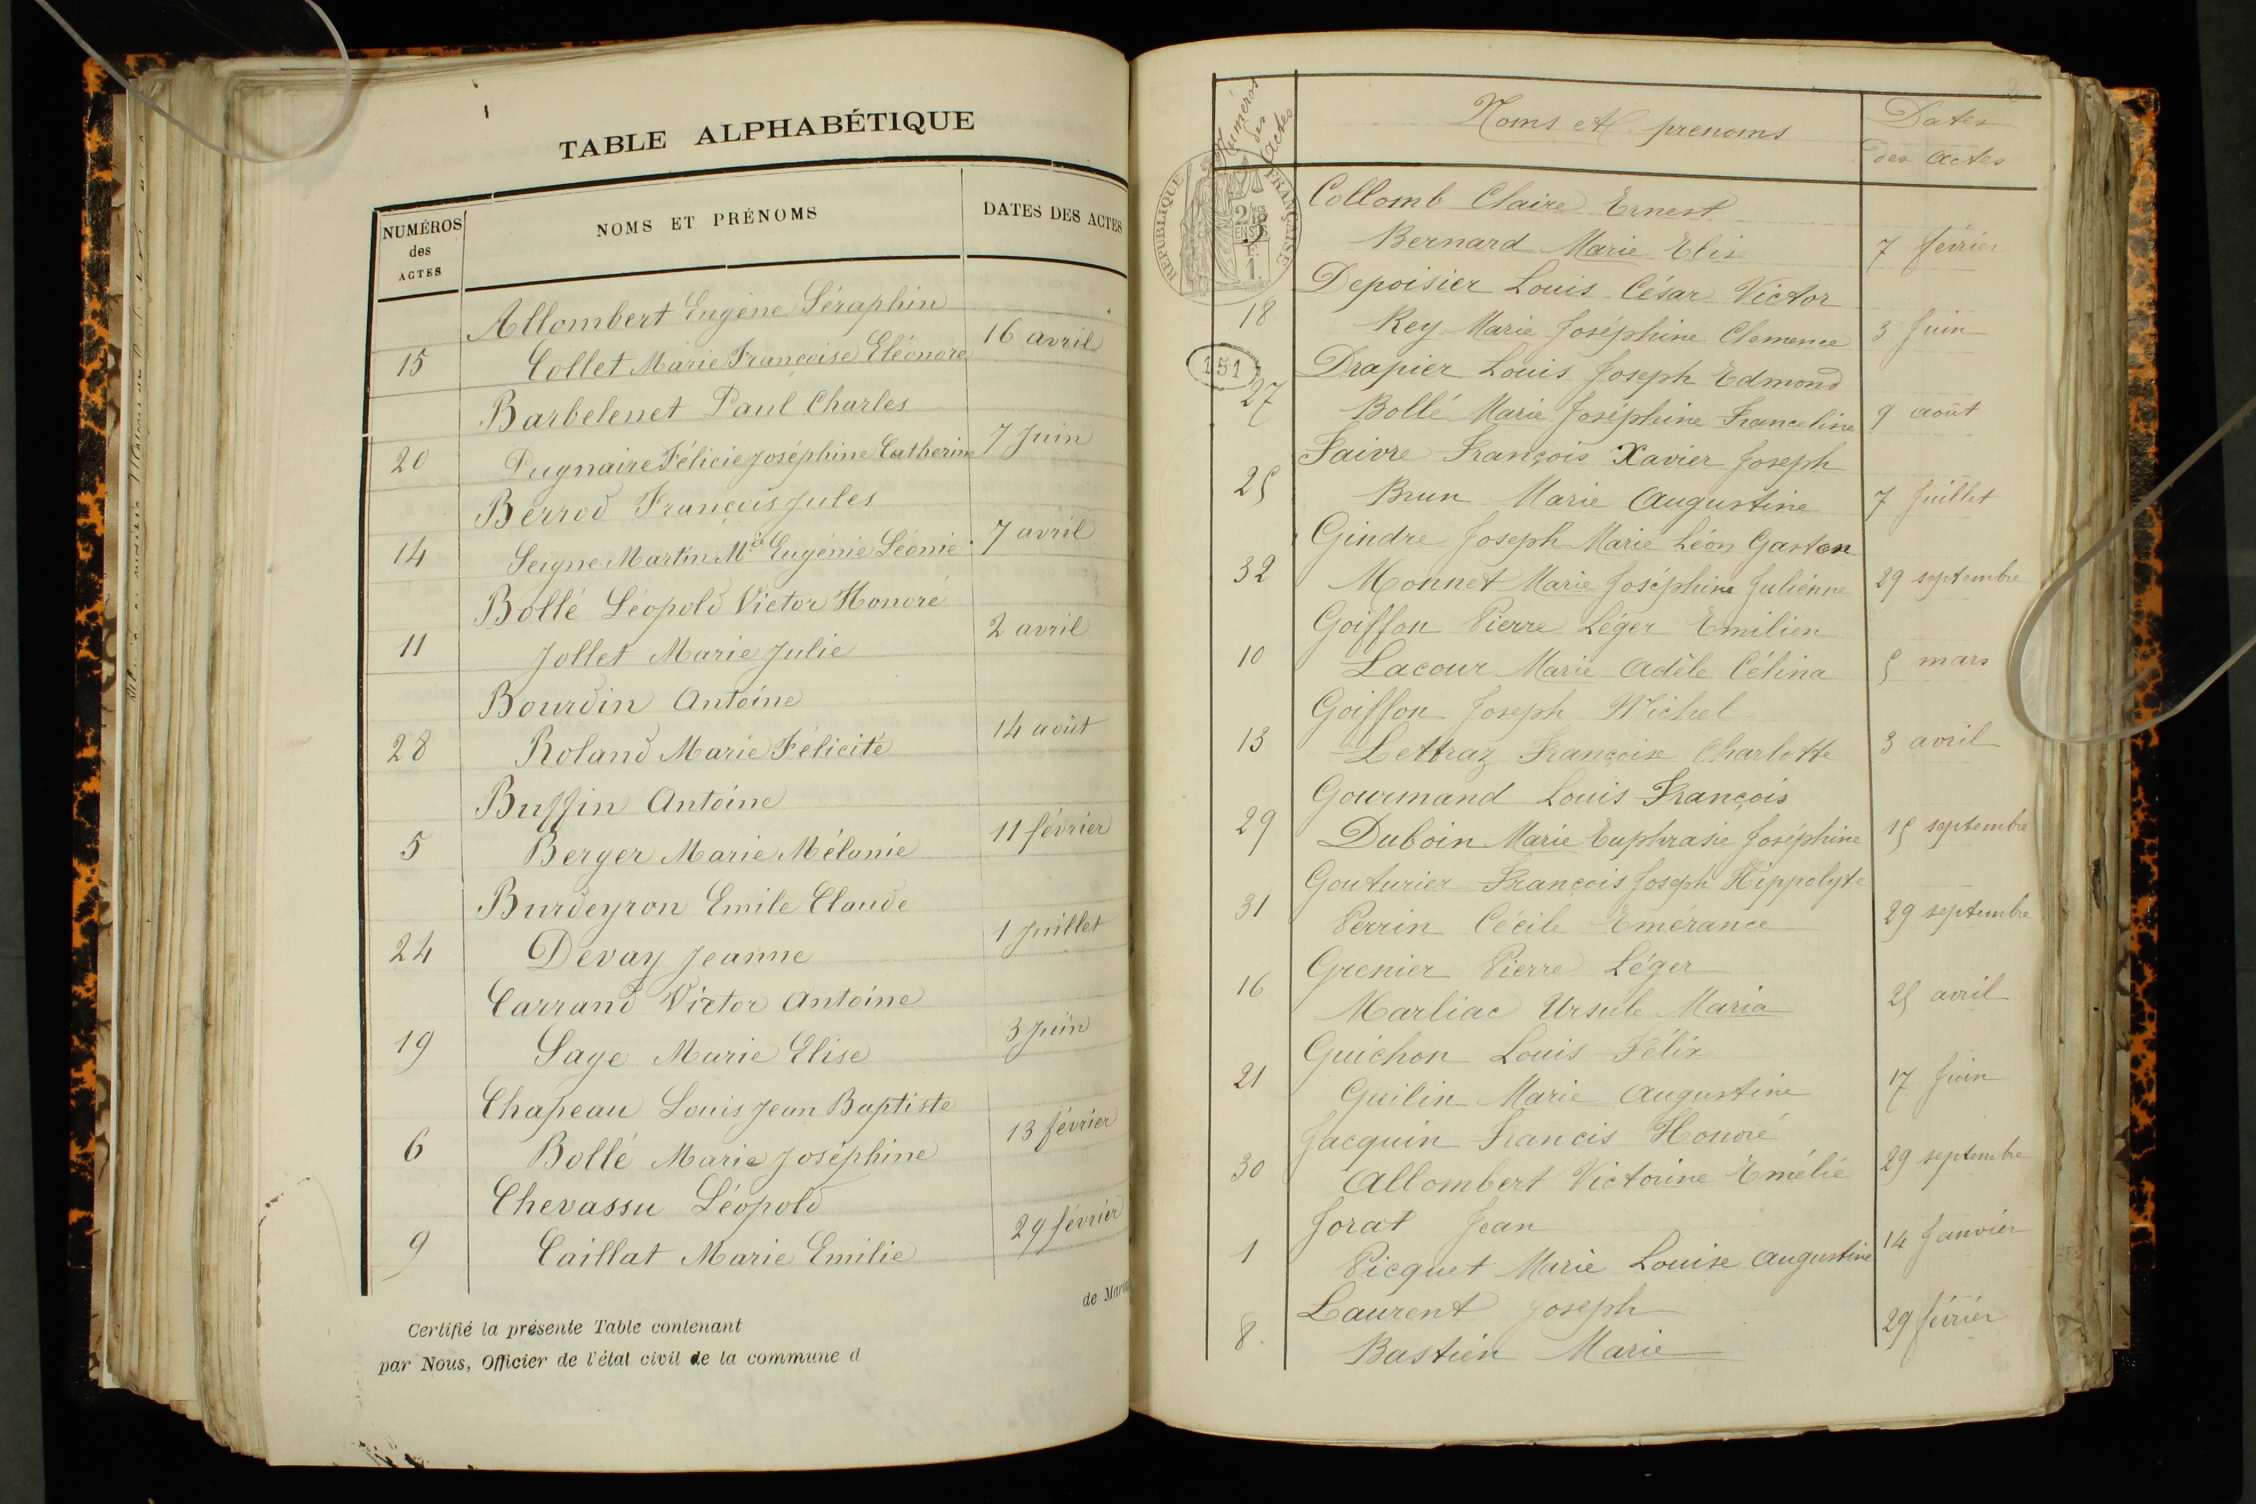 TABLE ALPHABÉTIQUE
NUMÉROS des ACTES
NOMS ET PRÉNOMS
DATES DES ACTES
Allombert Eugène Séraphin
15 Collet Marie Françoise Eléonore 16 avril
Barbelenet Paul Charles
20 Pugnaire Félicie Joséphine Catherine 7 Juin
Berrod François Jules
14 Seigne Martin Mie Eugénie Léonie 7 avril
Bollé Léopold Victor Honoré
11 Jollet Marie Julie 2 avril
Bourdin Antoine
28 Roland Marie Félicité 14 août
Buffin Antoine
5 Berger Marie Mélanie 11 février
Burdeyron Emile Claude
24 Devay Jeanne 1 Juillet
Carrand Victor Antoine
19 Saye Marie Elise 3 Juin
Chapeau Louis Jean Baptiste
6 Bollé Marie Joséphine 13 février
Chevassu Léopold
9 Caillat Marie Emilie 29 février
de Mar
Certifié la présente Table contenant
par Nous, Officier de l'état civil de la commune d
Numéros des Actes
Noms et prenoms
Dates des actes
RÉPUBLIQUE FRANÇAISE
Collomb Claire Ernest
3 Bernard Marie Elise 7 février
Depoisier Louis César Victor
18 Rey Marie Joséphine Clemence 3 Juin
151
Drapier Louis Joseph Edmond
27 Bollé Marie Joséphine Franceline 9 août
Faivre François Xavier Joseph
25 Brun Marie Augustine 7 Juillet
Gindre Joseph Marie Léon Gaston
32 Monnet Marie Joséphine Julienne 29 septembre
Goiffon Pierre Léger Emilien
10 Lacour Marie Adèle Célina 5 mars
Goiffon Joseph Michel
13 Lettraz Françoise Charlotte 3 avril
Gourmand Louis François
29 Duboin Marie Euphrasie Joséphine 15 septembre
Gouturier François Joseph Hippolyte
31 Perrin Cécile Emérance 29 septembre
Grenier Pierre Léger
16 Marliac Ursule Maria 25 avril
Guichon Louis Félix
21 Guilin Marie Augustine 17 Juin
Jacquin Francis Honoré
30 Allombert Victorine Emélie 29 septembre
Jorat Jean
1 Picquet Marie Louise Augustine 14 Janvier
Laurent Joseph
8. Bastien Marie 29 février